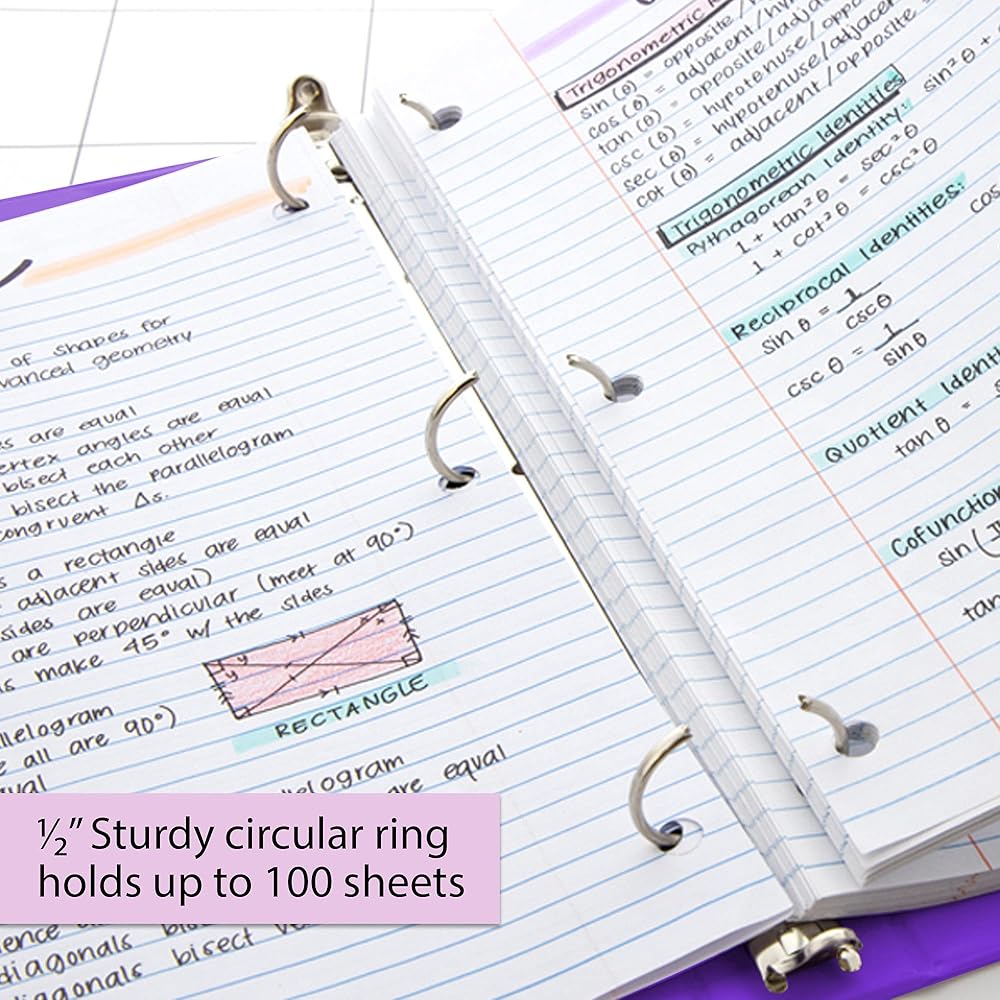 of shapes for
advanced geometry
are equal
vertex angles are equal
bisect each other
bisect the parallelogram
congruent Δs.
a rectangle
adjacent sides are equal
sides are equal)
are perpendicular (meet at 90°)
make 45° w/ the sides
x
x
y
y
RECTANGLE
all are 90°)
are equal
½” Sturdy circular ring
holds up to 100 sheets
diagonals
diagonals bisect
Trigonometric
sin (θ) = opposite /
cos (θ) = adjacent/hyp
tan (θ) = opposite/adja
csc (θ) = hypotenuse/oppo
sec (θ) = hypotenuse/adjacent
cot (θ) = adjacent /opposite
Trigonometric Identities
Pythagorean Identity: sin²θ +
1 + tan²θ = sec²θ
1 + cot²θ = csc²θ
Reciprocal Identities:
sin θ = 1/cscθ
cos
csc θ = 1/sinθ
Quotient Identi
tan θ =
Cofunction
sin(
tan